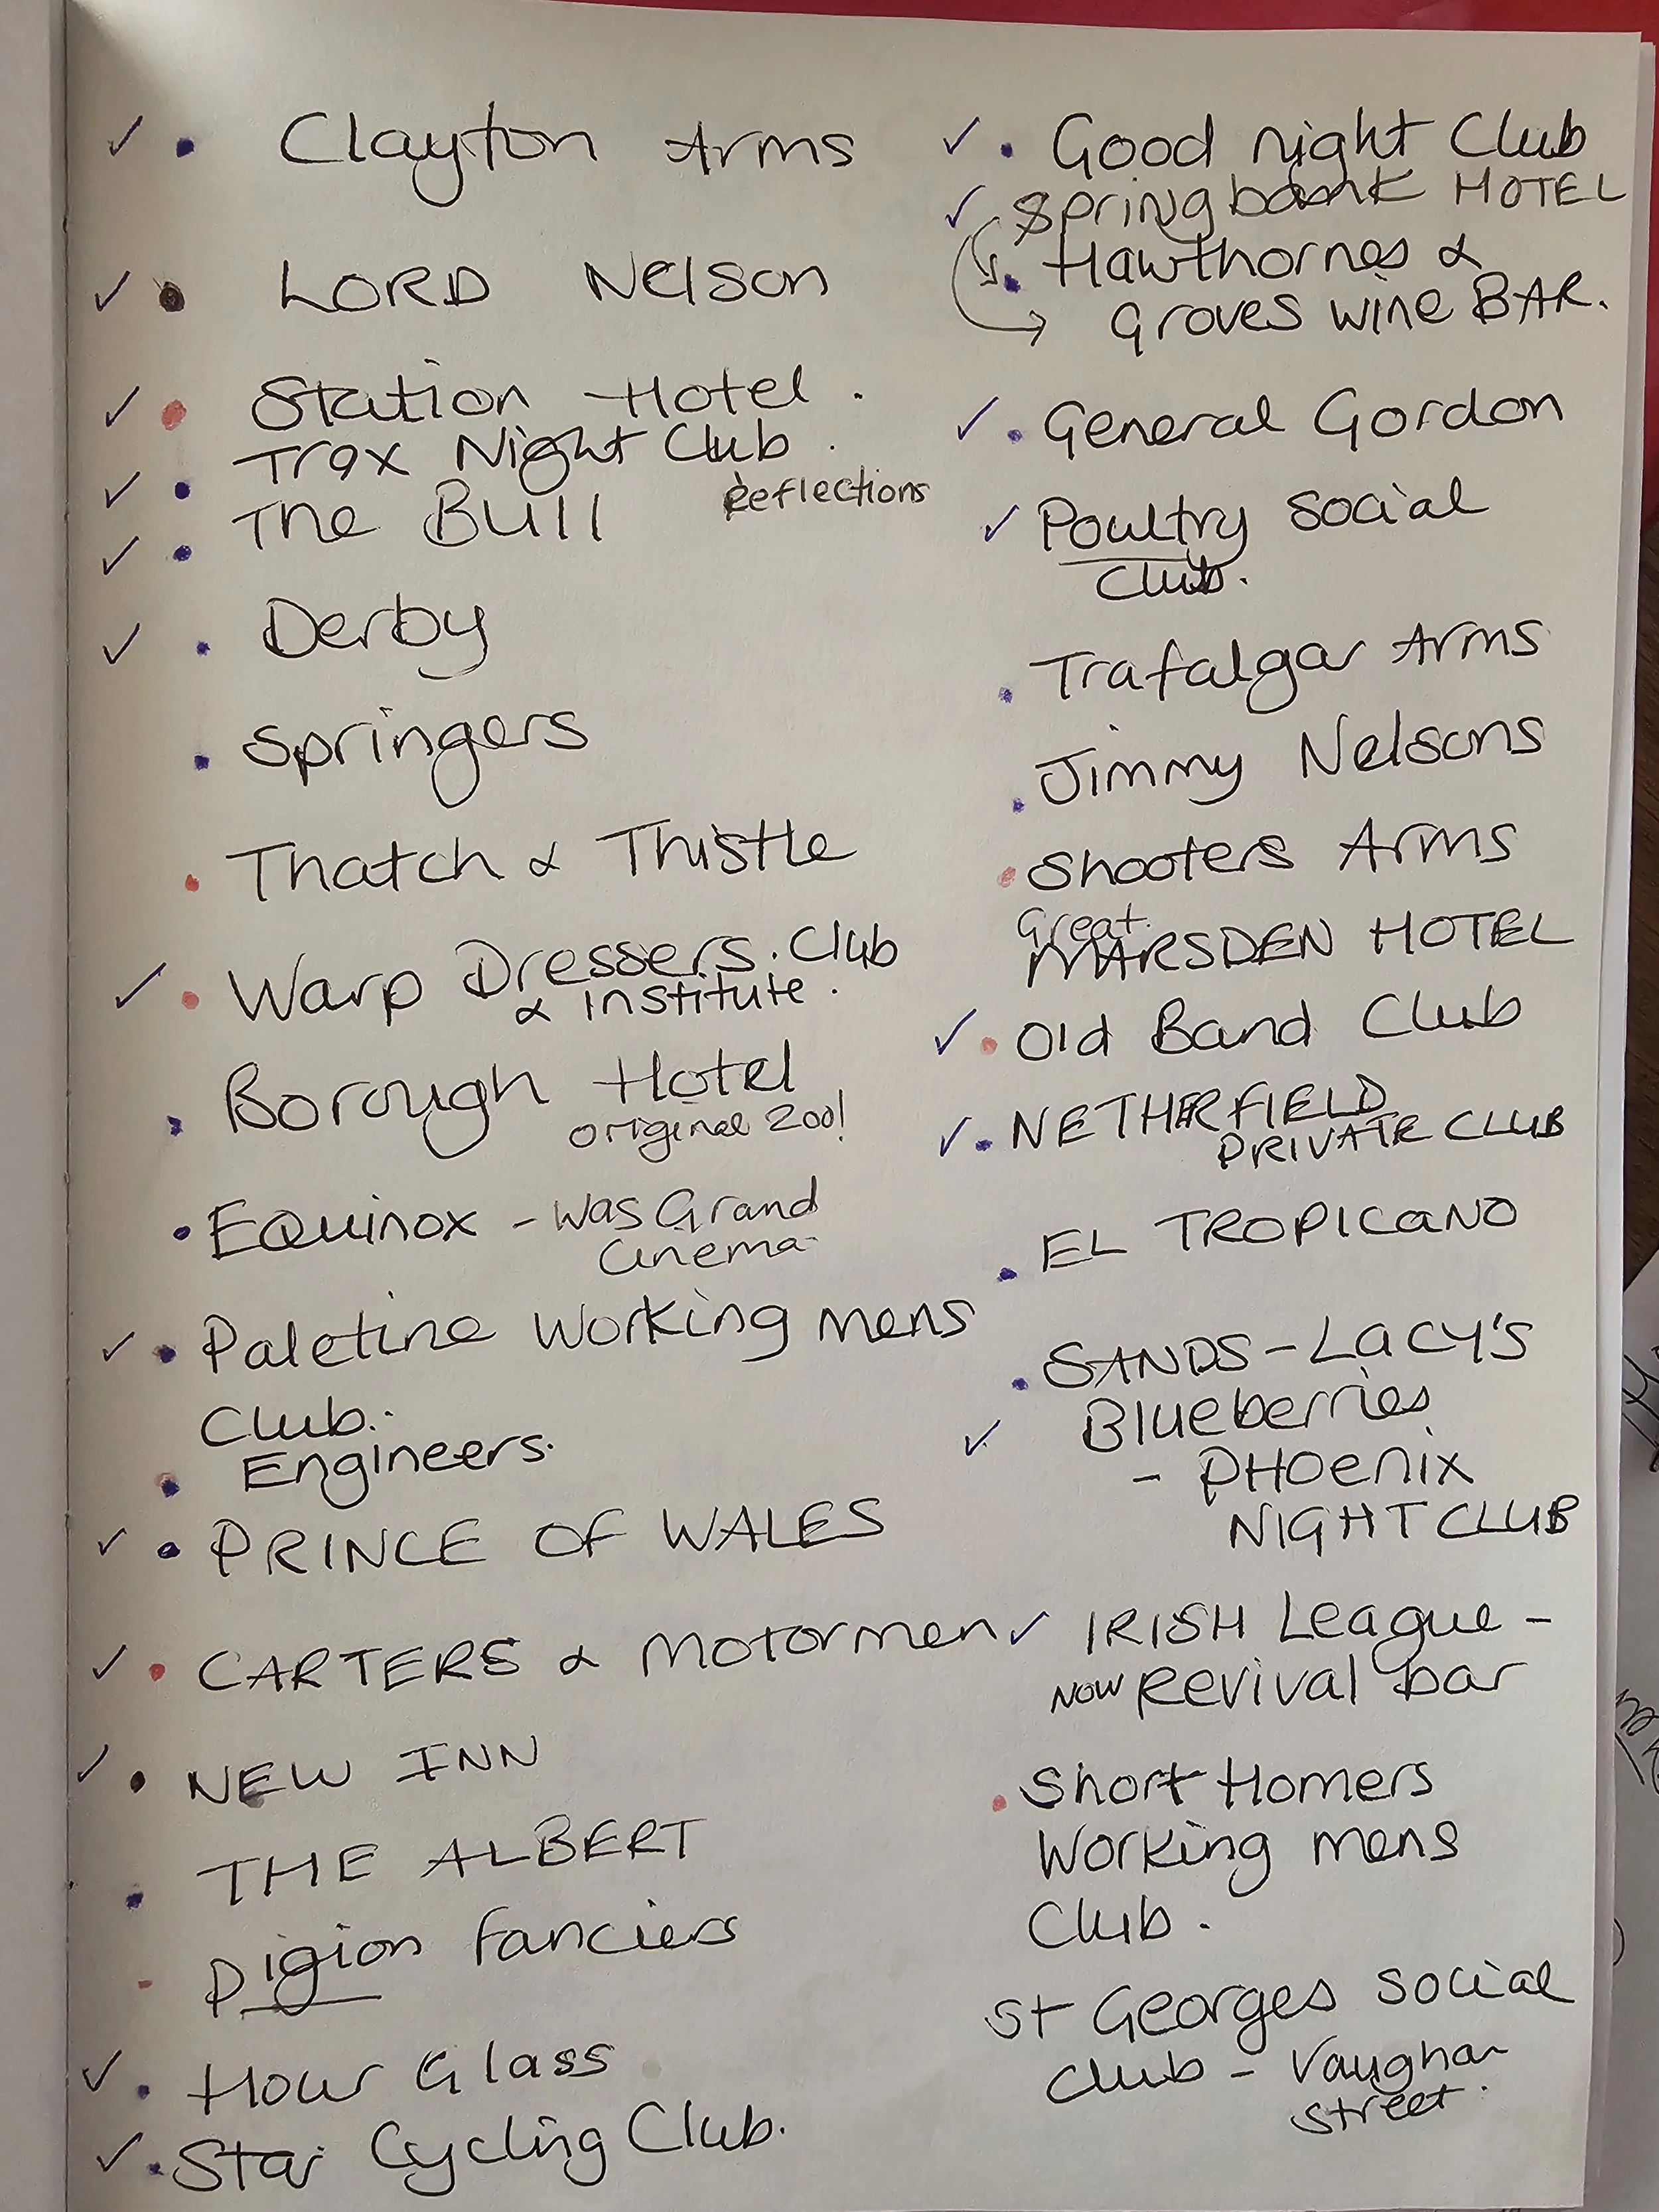 Clayton Arms
LORD Nelson
Station Hotel.
Trax Night Club.
Reflections
The Bull
Derby
Springers
Thatch & Thistle
Warp Dressers. Club
& institute.
Borough Hotel
original 200!
EQuinox - was Grand
Cinema
Paletine Working mens
Club.
Engineers.
PRINCE OF WALES
CARTERS & Motormen
NEW INN
THE ALBERT
Pigion fanciers
Hour Glass
Star Cycling Club.
Good night Club
Springbank HOTEL
Hawthornes &
Groves wine BAR.
General Gordon
Poultry social
Club.
Trafalgar Arms
Jimmy Nelsons
Shooters Arms
Great
MARSDEN HOTEL
Old Band Club
NETHERFIELD
PRIVATE CLUB
EL TROPICANO
SANDS - LACY'S
Blueberries
- PHOENIX
NIGHT CLUB
IRISH League -
NOW Revival bar
Short Homers
Working mens
Club.
St Georges social
Club - Vaughan
street.